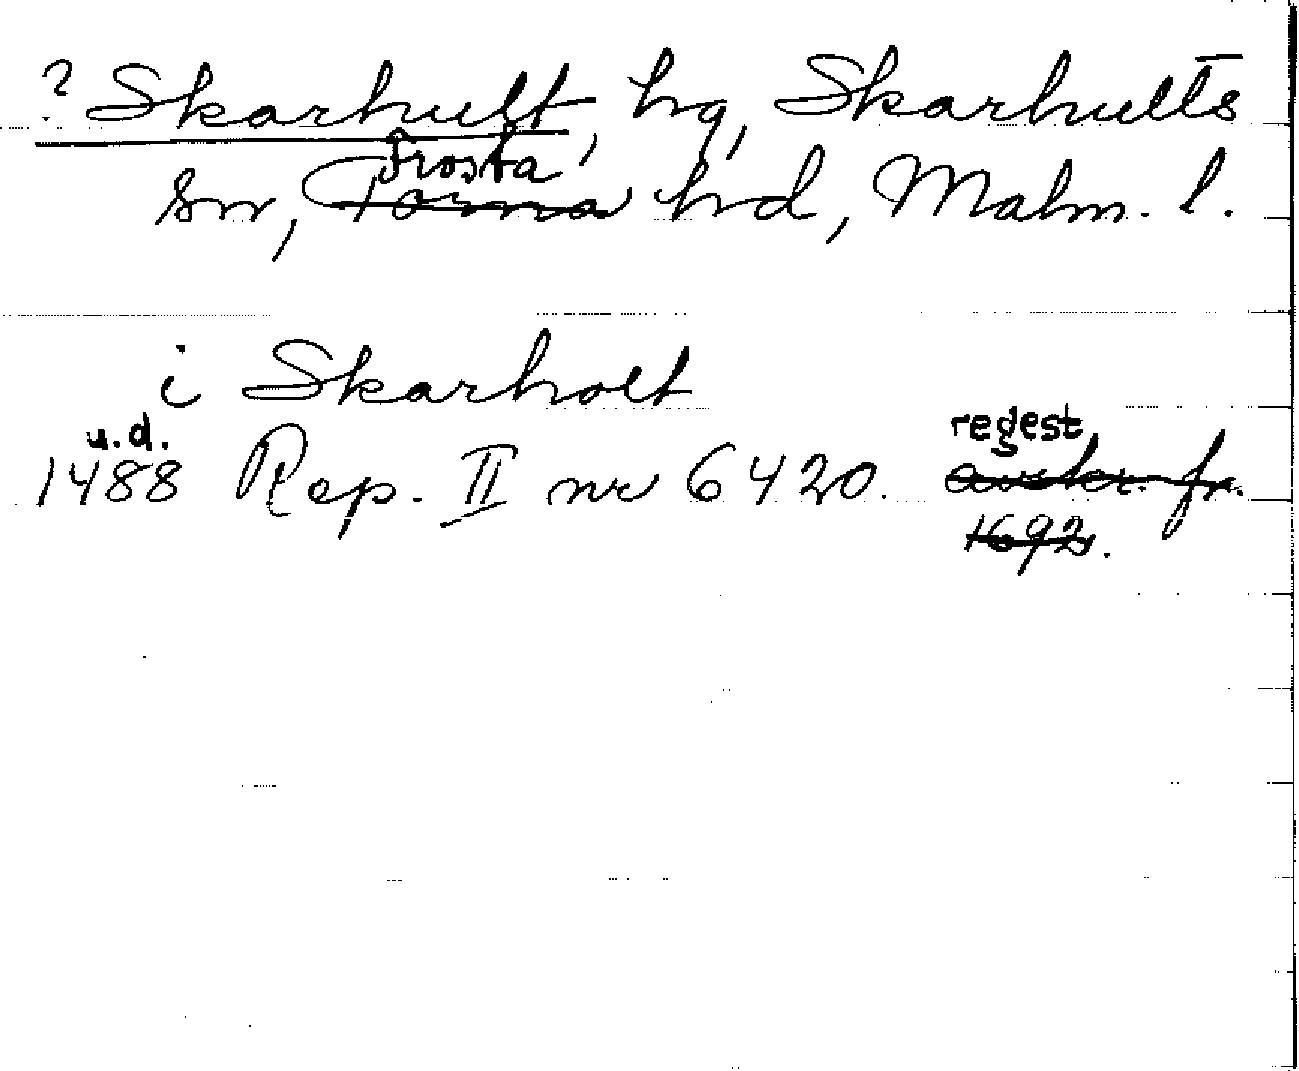 ? Skarhult, hg, Skarhults
Frosta
sn, Torna hd, Malm. l.
i Skarholt
u.d. regest
1488 Rep. II nr 6420. avskr. fr.
1692.